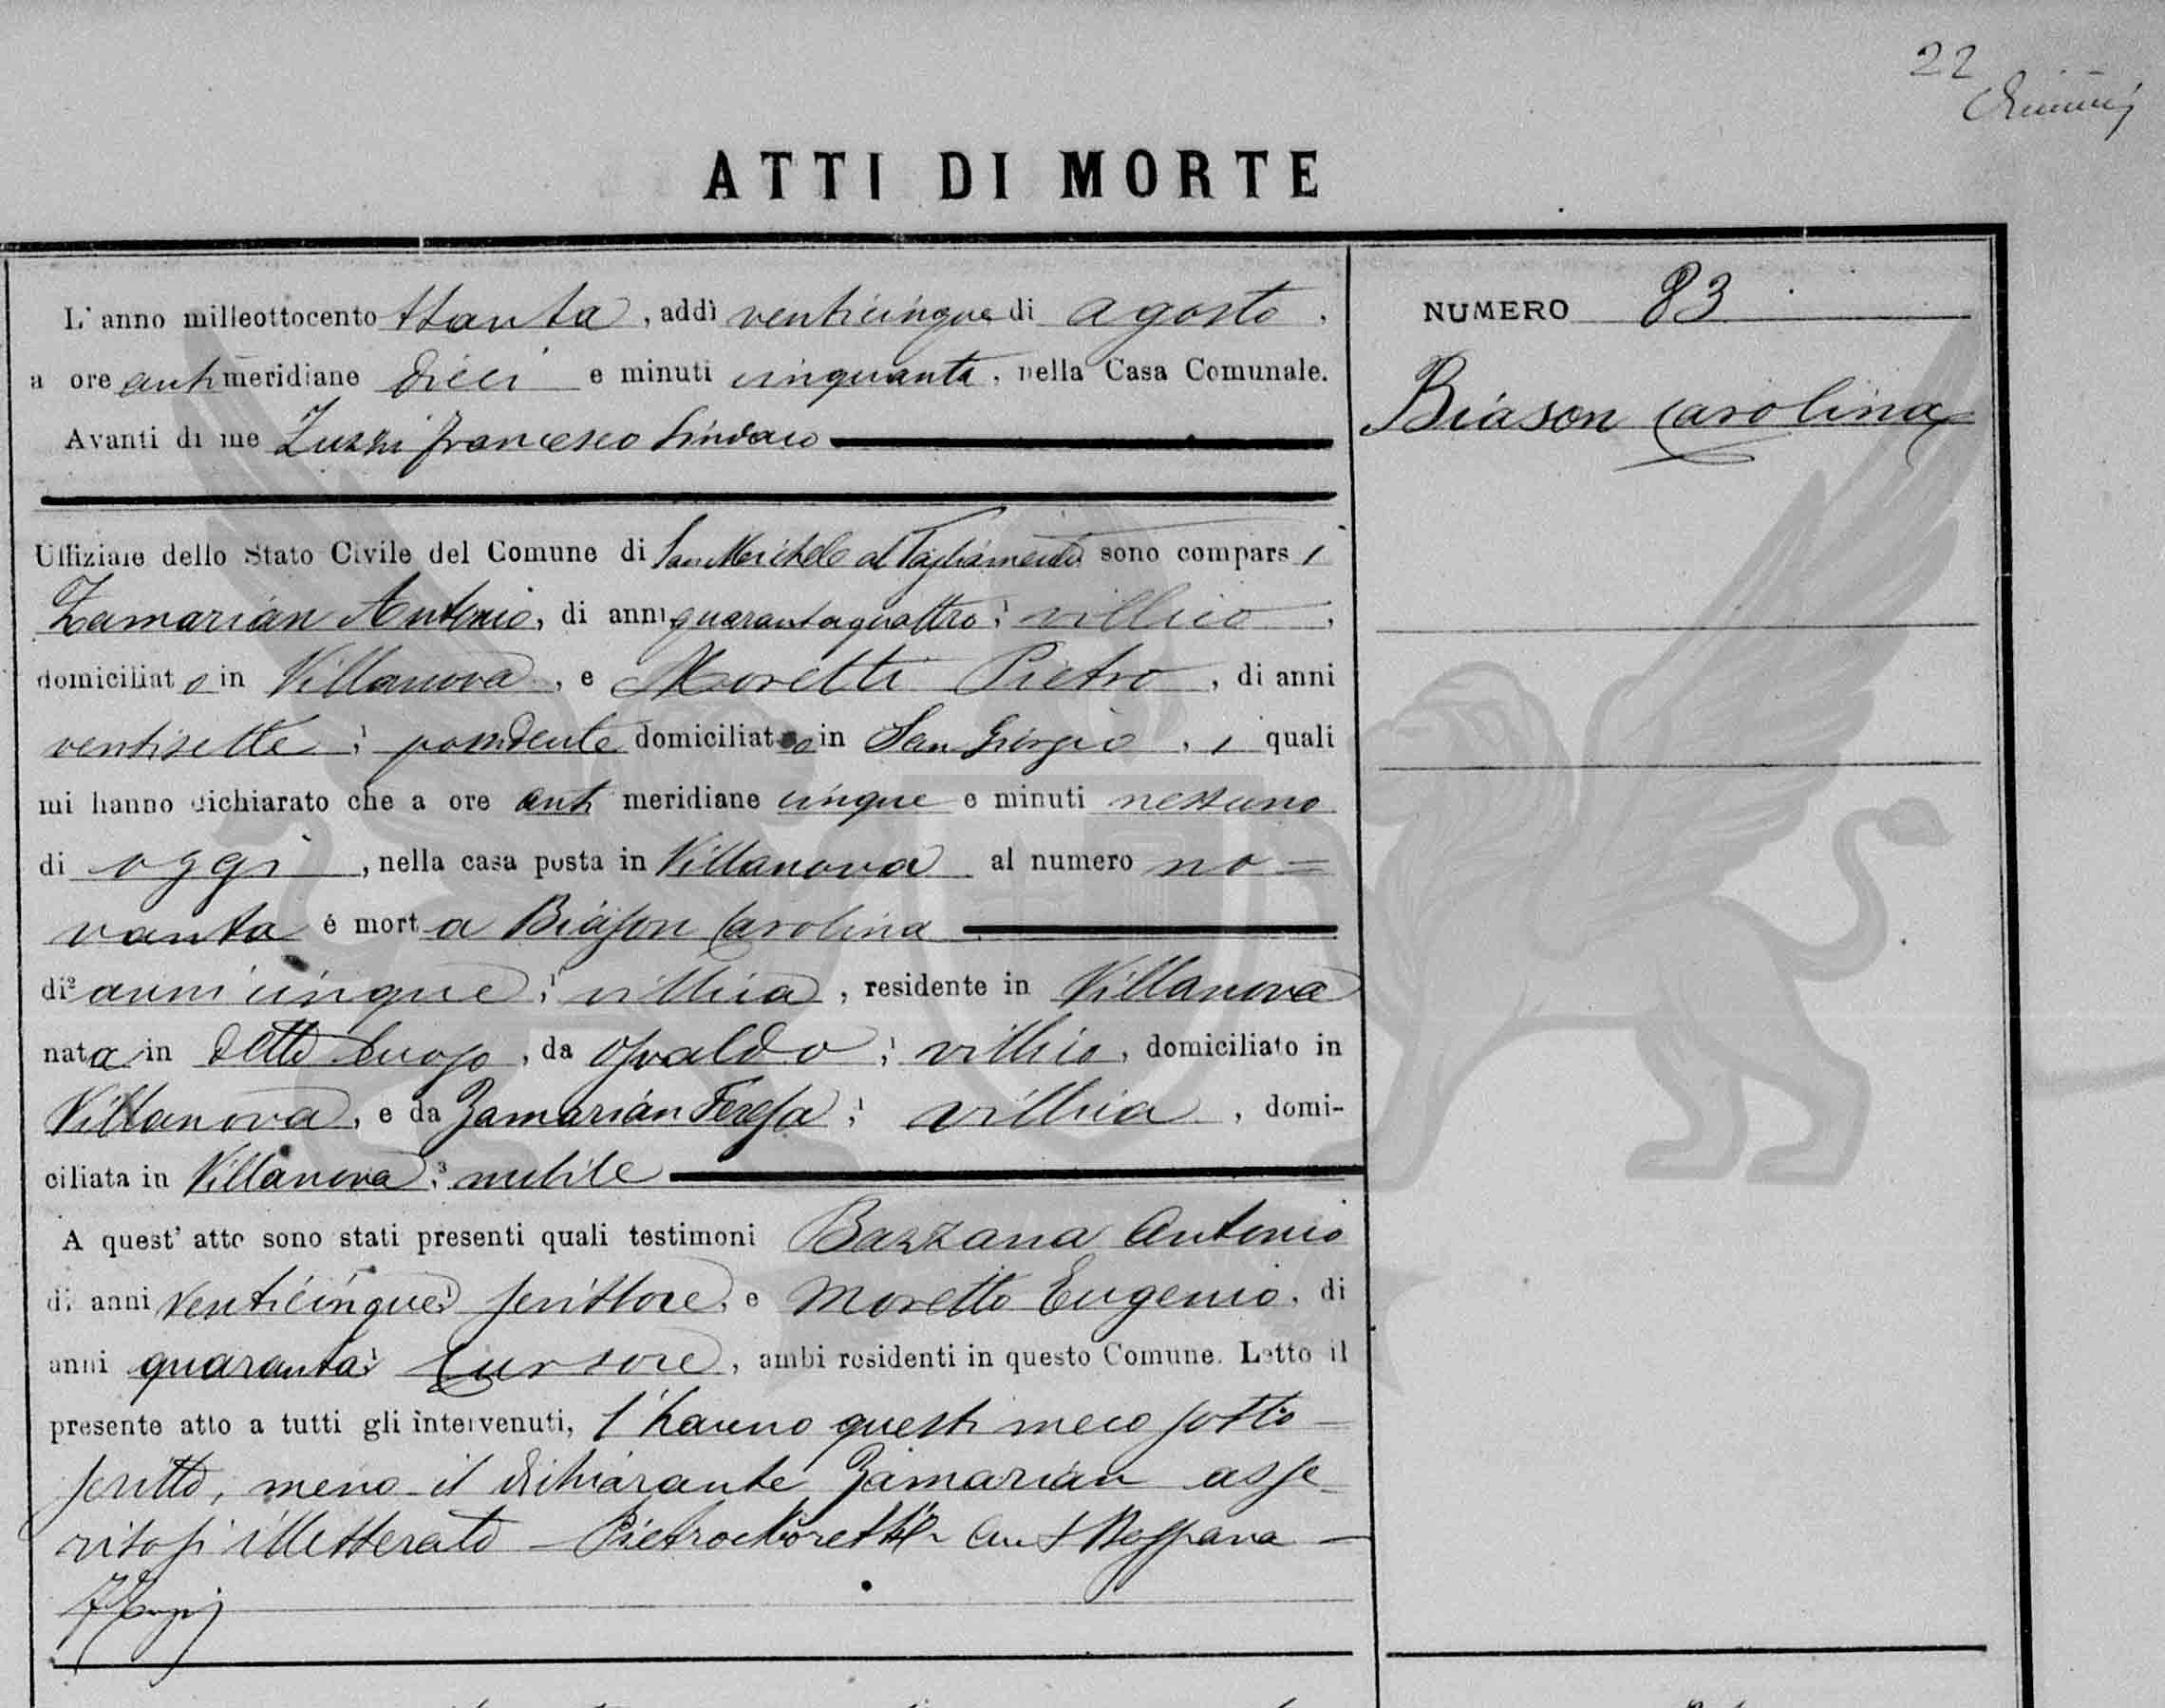 22
ATTI DI MORTE
L'anno milleottocento ttanta, addì venticinque di agosto,
a ore antimeridiane dieci e minuti cinquanta, nella Casa Comunale.
Avanti di me Zuzzi Francesco Sindaco
Uffiziale dello Stato Civile del Comune di San Michele al Tagliamento sono comparsi
Zamarian Antonio, di anni quarantaquattro; villico,
domiciliato in Villanova, e Moretti Pietro, di anni
ventisette; possidente domiciliato in San Giorgio, i quali
mi hanno dichiarato che a ore anti meridiane cinque e minuti nessuno
di oggi, nella casa posta in Villanova al numero no=
vanta è morta Biason Carolina
di anni cinque; villica, residente in Villanova
nata in detto luogo, da Osvaldo; villico, domiciliato in
Villanova, e da Zamarian Teresa; villica, domi-
ciliata in Villanova; nubile
A quest'atto sono stati presenti quali testimoni Bazzana Antonio
di anni venticinque; scrittore, e Moretto Eugenio, di
anni quaranta; Cursore, ambi residenti in questo Comune. Letto il
presente atto a tutti gli intervenuti, l'hanno questi meco sotto=
scritto, meno il dichiarante Zamarian asse=
ritosi illetterato - Pietro Moretti Ant Bazzana -
NUMERO 83
Biason Carolina